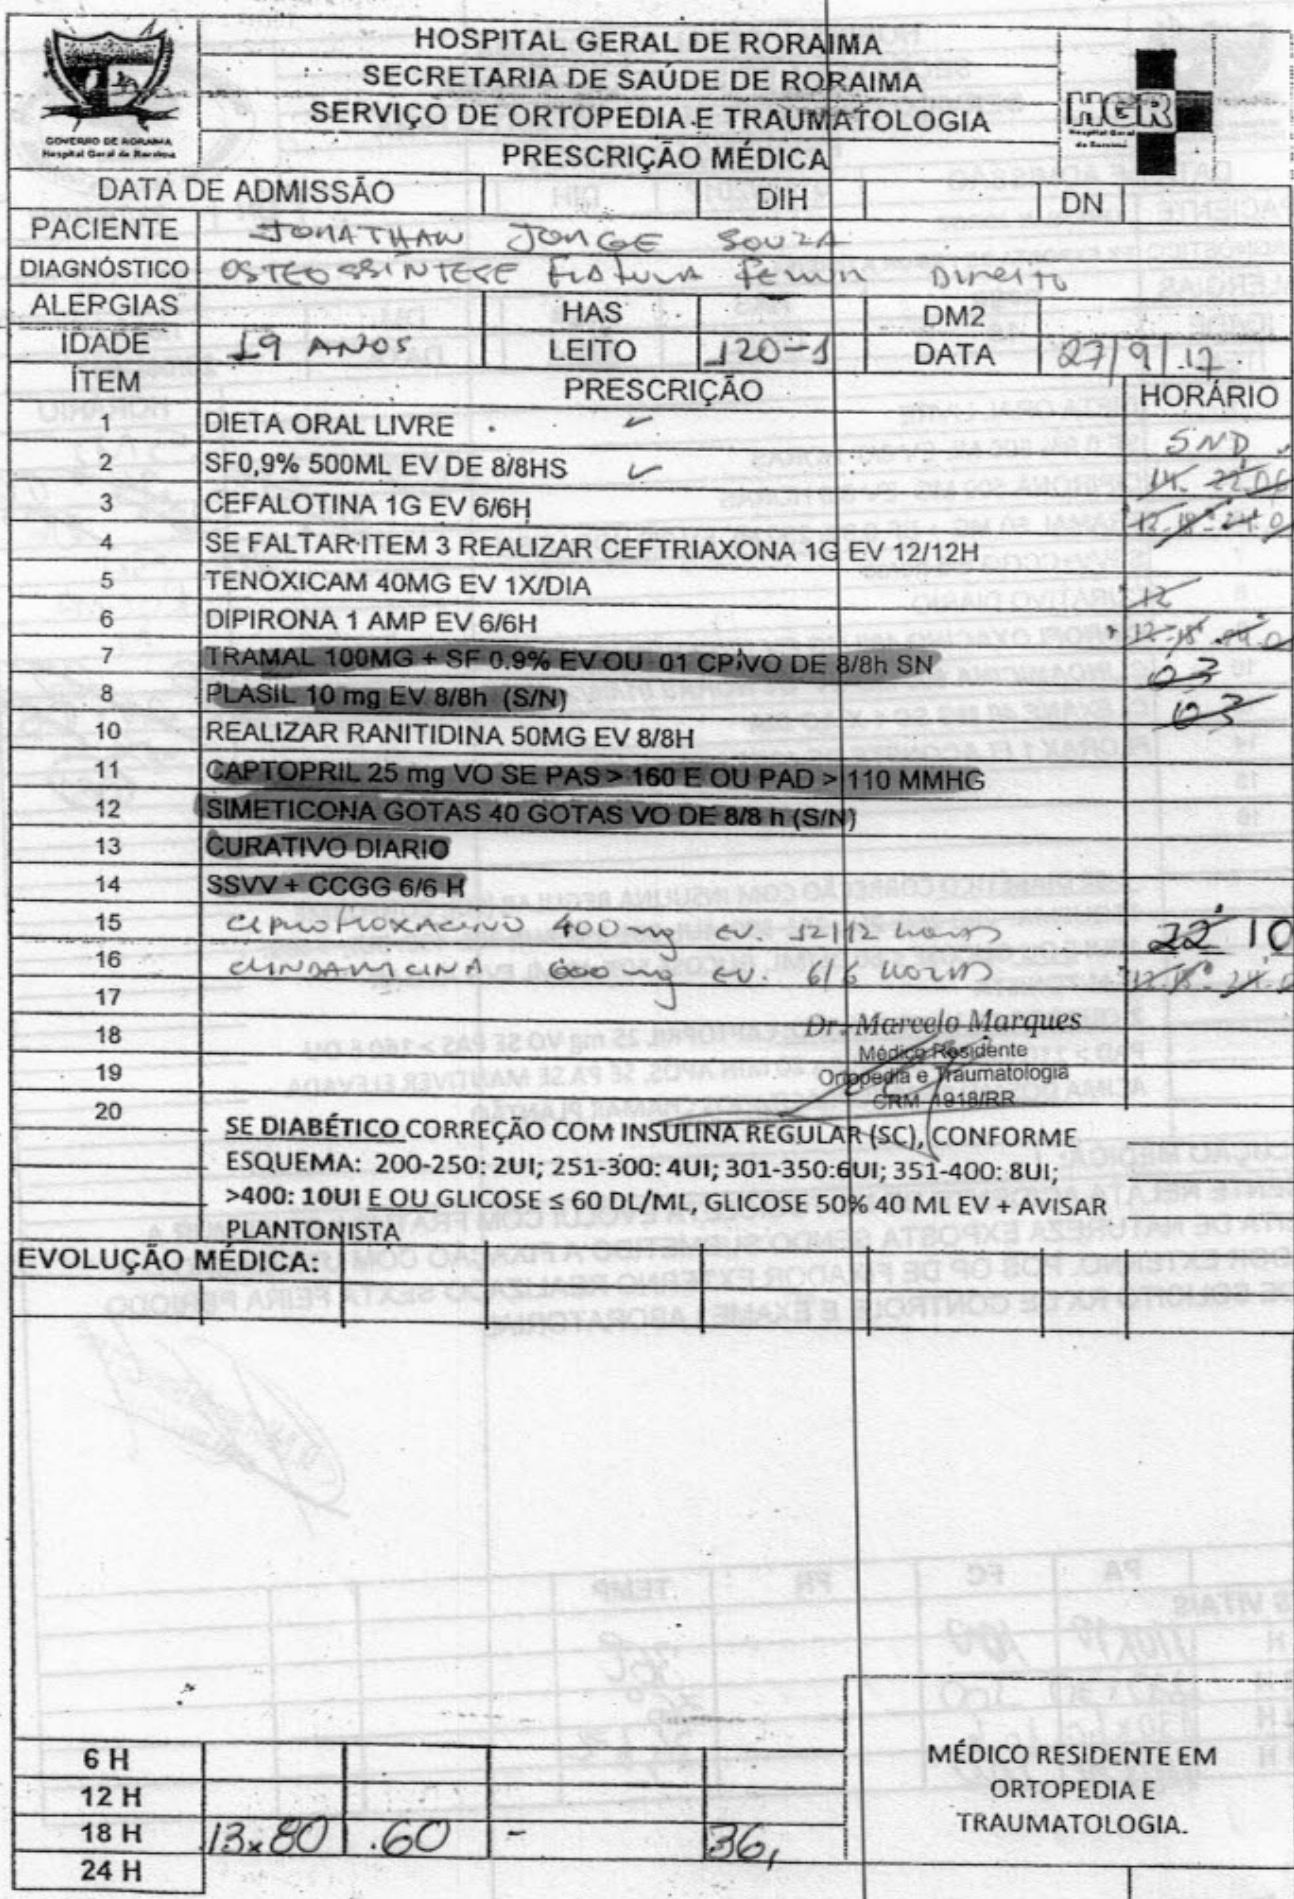 HOSPITAL GERAL DE RORAIMA
SECRETARIA DE SAÚDE DE RORAIMA
SERVIÇO DE ORTOPEDIA E TRAUMATOLOGIA
PRESCRIÇÃO MÉDICA
GOVERNO DE RORAIMA
Hospital Geral de Roraima
HGR
Hospital Geral
de Roraima
DATA DE ADMISSÃO DIH DN
PACIENTE JONATHAN JORGE SOUZA
DIAGNÓSTICO OSTEOSSINTESE FRATURA FEMUR DIREITO
ALERGIAS HAS DM2
IDADE 19 ANOS LEITO 120-1 DATA 27/9/17
ÍTEM PRESCRIÇÃO HORÁRIO
1 DIETA ORAL LIVRE SND
2 SF0,9% 500ML EV DE 8/8HS 14 22 06
3 CEFALOTINA 1G EV 6/6H 12 18 24
4 SE FALTAR ITEM 3 REALIZAR CEFTRIAXONA 1G EV 12/12H
5 TENOXICAM 40MG EV 1X/DIA 12
6 DIPIRONA 1 AMP EV 6/6H 12 18
7 TRAMAL 100MG + SF 0.9% EV OU 01 CP VO DE 8/8h SN 03
8 PLASIL 10 mg EV 8/8h (S/N) 03
10 REALIZAR RANITIDINA 50MG EV 8/8H
11 CAPTOPRIL 25 mg VO SE PAS > 160 E OU PAD > 110 MMHG
12 SIMETICONA GOTAS 40 GOTAS VO DE 8/8 h (S/N)
13 CURATIVO DIARIO
14 SSVV + CCGG 6/6 H
15 CIPROFLOXACINO 400mg EV. 12/12 horas 22 10
16 CLINDAMICINA 600mg EV. 6/6 horas 12 18 24
17
18
19
20
Dr. Marcelo Marques
Médico Residente
Ortopedia e Traumatologia
CRM 1918/RR
SE DIABÉTICO CORREÇÃO COM INSULINA REGULAR (SC), CONFORME
ESQUEMA: 200-250: 2UI; 251-300: 4UI; 301-350:6UI; 351-400: 8UI;
>400: 10UI E OU GLICOSE ≤ 60 DL/ML, GLICOSE 50% 40 ML EV + AVISAR
PLANTONISTA
EVOLUÇÃO MÉDICA:
6 H
12 H
18 H 13x80 .60 - 36,
24 H
MÉDICO RESIDENTE EM
ORTOPEDIA E
TRAUMATOLOGIA.